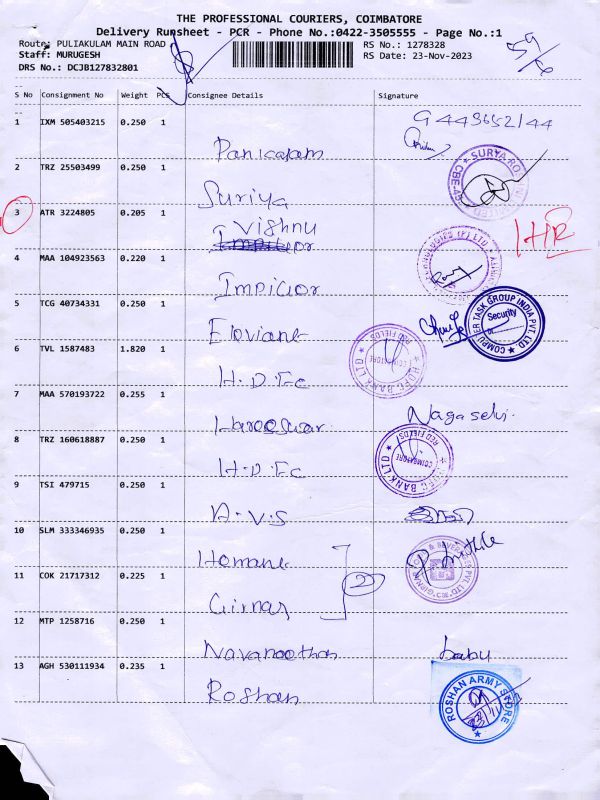 THE PROFESSIONAL COURIERS, COIMBATORE
Delivery Runsheet - PCR - Phone No.:0422-3505555 - Page No.:1
Route: PULIAKULAM MAIN ROAD
RS No.: 1278328
Staff: MURUGESH
RS Date: 23-Nov-2023
DRS No.: DCJB127832801
S No Consignment No Weight PCS Consignee Details Signature
1 IXM 505403215 0.250 1
2 TRZ 25503499 0.250 1
SURYA
Suriya
3 ATR 3224805 0.205 1
Vishnu
4 MAA 104923563 0.220 1
5 TCG 40734331 0.250 1
COMPUTER TASK GROUP INDIA PVT. LTD
Security
6 TVL 1587483 1.820 1
HDFC BANK LTD COIMBATORE RED FIELDS
H.D.F.C
7 MAA 570193722 0.255 1
Nagaselvi.
8 TRZ 160618887 0.250 1
HDFC BANK LTD COIMBATORE RED FIELDS
H.D.F.C
9 TSI 479715 0.250 1
A.V.S
10 SLM 333346935 0.250 1
11 COK 21717312 0.225 1
Girnar
12 MTP 1258716 0.250 1
babu
13 AGH 530111934 0.235 1
Roshan
ROSHAN ARMY STORE